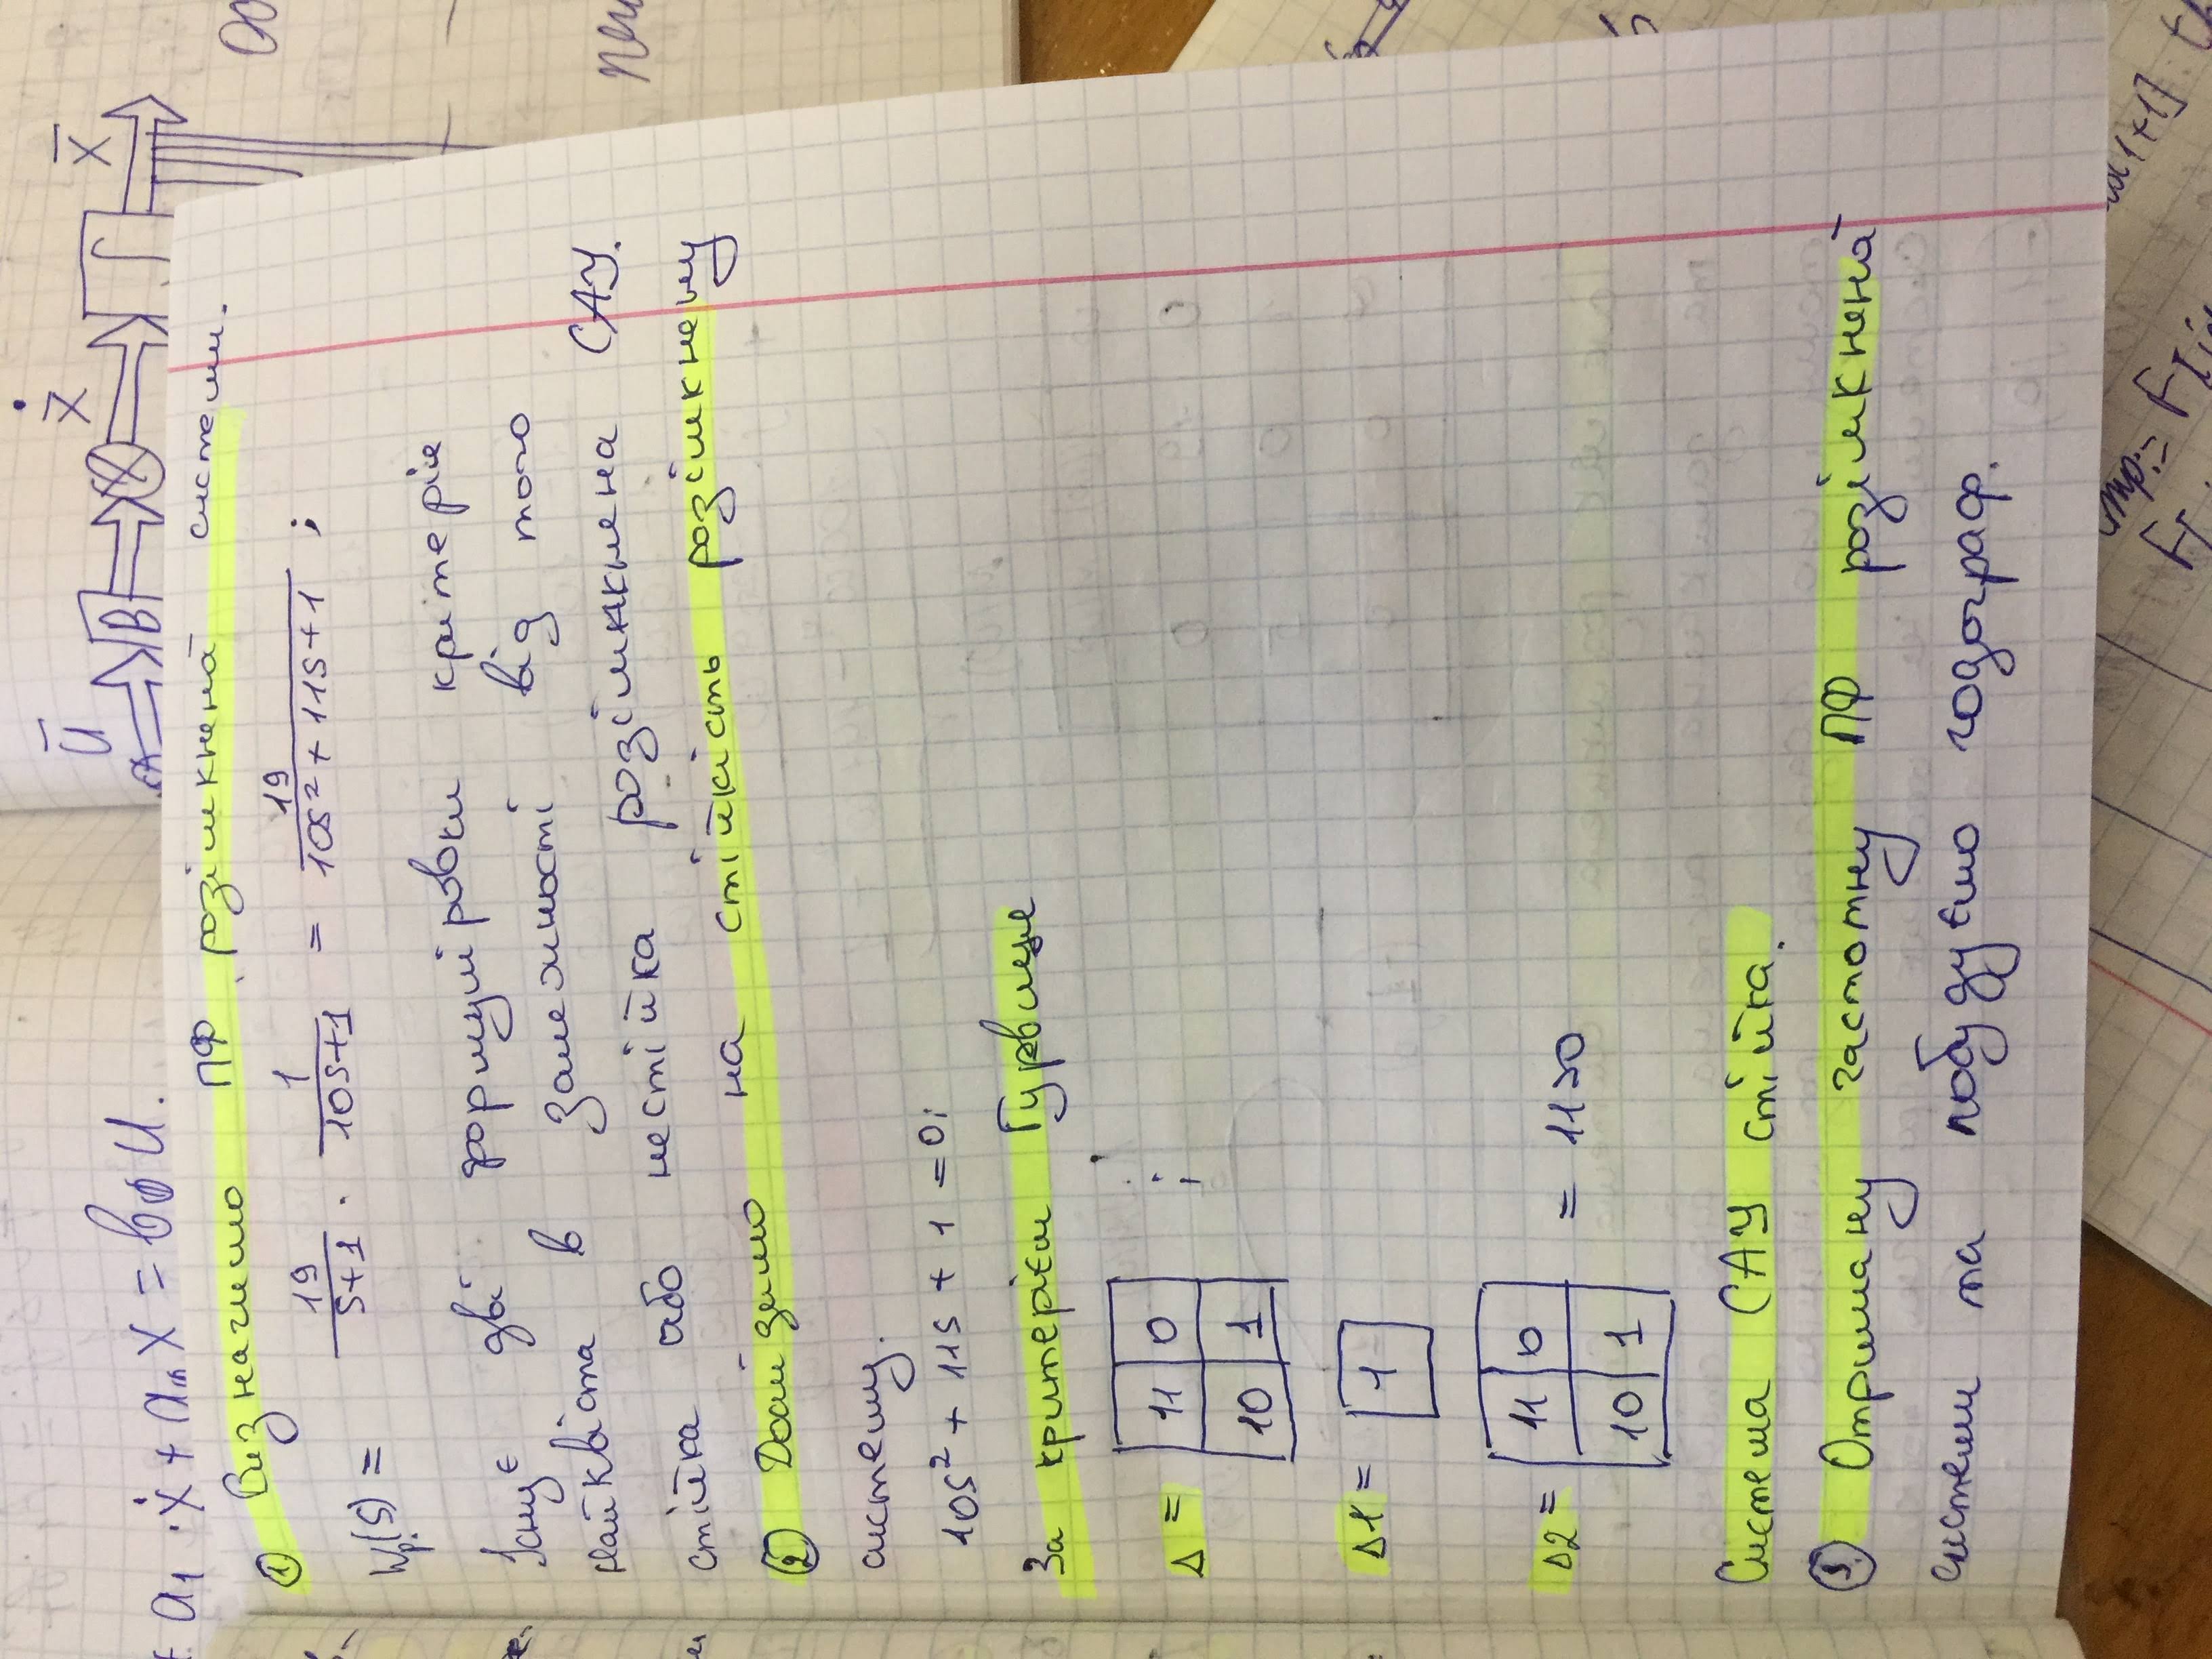 a₁ · ẋ + aₙ x = b₀ U.
Ū
B
Ẋ
∫
X̄
① Визначимо ПФ розімкненої системи.
Wp.(s) = 19/(s+1) · 1/(10s+1) = 19/(10s² + 11s + 1) ;
Існує дві формуліровки критерія
Найквіста в залежності від того
стійка або нестійка розімкнена САУ.
② Дослідимо на стійкість розімкнену
систему.
10s² + 11s + 1 = 0;
За критерієм Гурвіца
Δ = 11 0 ;
10 1
Δ1 = 1
Δ2 = 11 0 = 11>0
10 1
Система САУ стійка.
③ Отриману частотну ПФ розімкненої
системи та побудуємо годограф.